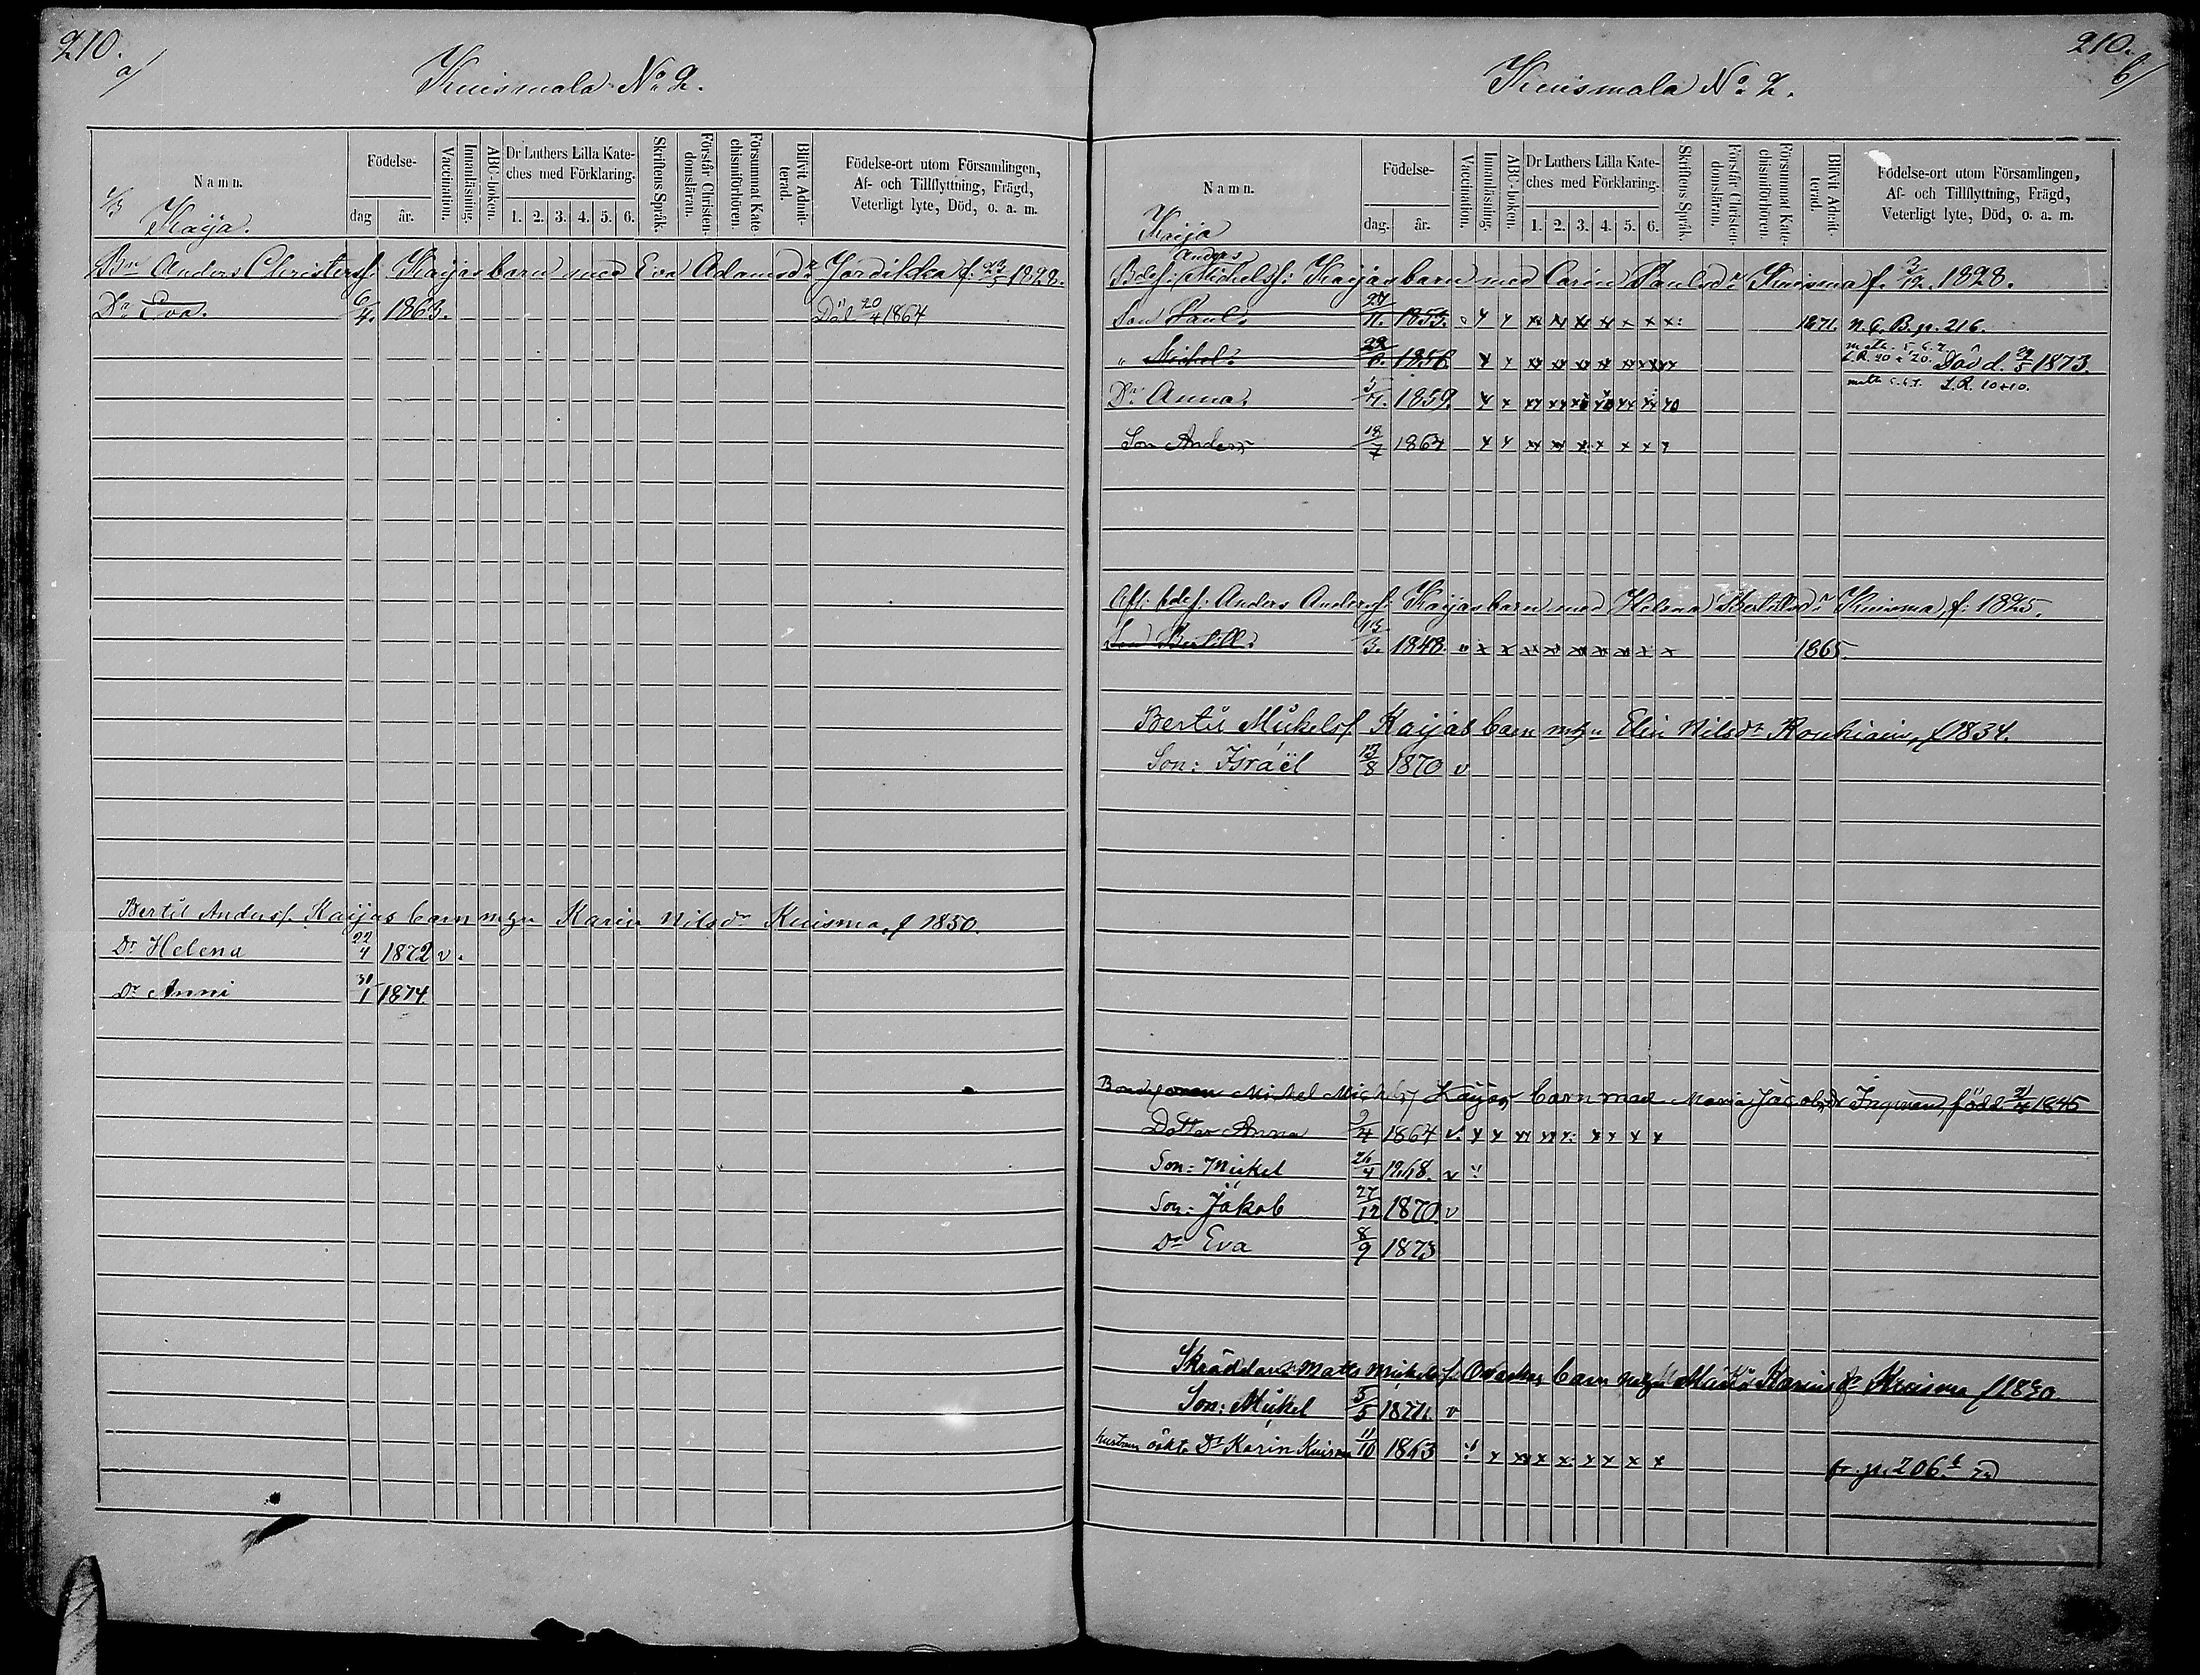 210.
a/
Kuismala No 2.
Namn.
Födelse-
dag
år.
Vaccination.
Innanläsning.
ABC-boken.
Dr Luthers Lilla Kate-
ches med Förklaring.
1. 2. 3. 4. 5. 6.
Skriftens Språk.
Förstår Christen-
domsläran.
Försummat Kate-
chismiförhören.
Blifvit Admit-
terad.
Födelse-ort utom Församlingen,
Af- och Tillflyttning, Frägd,
Veterligt lyte, Död, o. a. m.
1/3
Kaija.
Bn Anders Christersf. Kaijas barn med Eva Adamsdr Jordikka f. 1828.
Dr Eva. 6/4. 1863. Död 20/4 1864
Bertil Andersf. Kaijas barn m hn Karin Nilsdr Kuisma, f 1850.
Dr Helena 22/4 1872 v.
Dr Anni 31/1 1874.
210.
b/
Kuismala No 2.
Namn.
Födelse-
dag.
år.
Vaccination.
Innanläsning.
ABC-boken.
Dr Luthers Lilla Kate-
ches med Förklaring.
1. 2. 3. 4. 5. 6.
Skriftens Språk.
Förstår Christen-
domsläran.
Försummat Kate-
chismiförhören.
Blifvit Admit-
terad.
Födelse-ort utom Församlingen,
Af- och Tillflyttning, Frägd,
Veterligt lyte, Död, o. a. m.
Kaija
Anders
Bdes: Michelsf: Kaijas barn med Carin Paulsdr Kuisma f. 3/12. 1828.
Son Paul. 27/11. 1853. 1871. N. C. B. p. 216.
" Michel. 22/6. 1856. Död d. 29/5 1873.
Dr Anna. 5/11. 1859. L.R. 10+10.
Son Anders 18/7 1864
Afl: bdes: Anders Andersf: Kaijas barn med Helena Bertilsdr Kuisma f: 1825.
Son Bertill. 13/3. 1848. 1865.
Bertil Mickelsf. Kaijas barn m hn Elin Nilsdr Rouhiain, f 1834.
Son: Israël 12/8 1870 v
Bondesonen Michel Michelsf Kaijas barn med Maria Jacobsdr Inquinen född 21/4 1845
Dotter Anna 9/4 1864 v.
Son: Mickel 26/4 1868. v
Son: Jakob 27/12 1870. v
Dr Eva 8/9 1873
Skräddaren Matts Mickelsf. Ovaskas barn m hn Kuisma f 1830.
Son: Mickel 5/5 1871. v
hustrun oäkta Dr Karin Kuisma 11/10 1863
fr. p. 206.